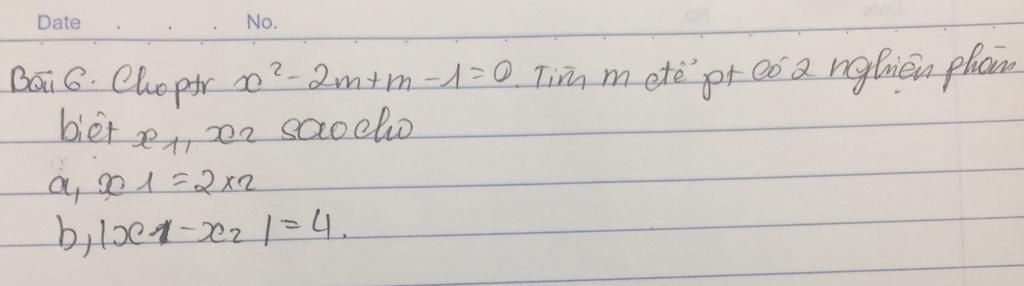 Date . . . No.
Bài 6. Cho ptr x² - 2m + m - 1 = 0. Tìm m để pt có 2 nghiệm phân
biệt x₁, x₂ sao cho
a, x1 = 2x2
b, |x1 - x2| = 4.